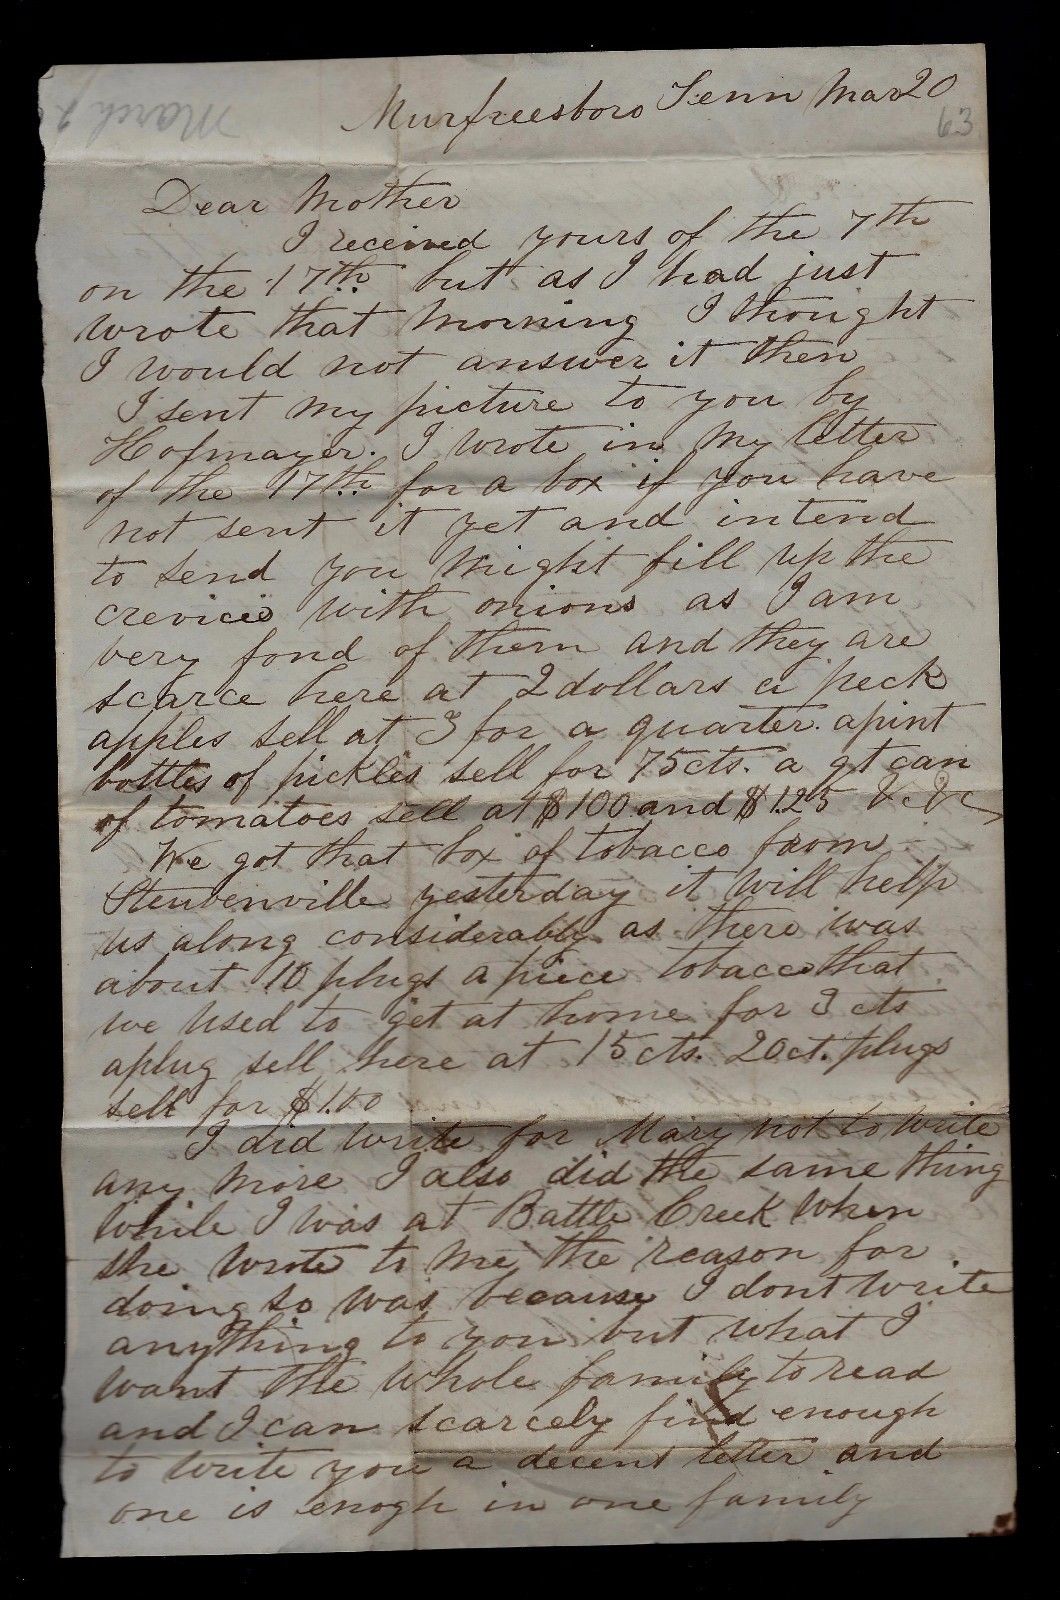 March
Murfreesboro Tenn Mar 20
63
Dear Mother
I received yours of the 7th
on the 17th but as I had just
wrote that morning I thought
I would not answer it then
I sent my picture to you by
Hofmayer. I wrote in my letter
of the 17th for a box if you have
not sent it yet and intend
to send you might fill up the
crevices with onions as I am
very fond of them and they are
scarce here at 2 dollars a peck
apples sell at 3 for a quarter. a pint
bottles of pickles sell for 75 cts. a qt can
of tomatoes sell at $1 00 and $1.25 &c &c
We got that box of tobacco from
Steubenville yesterday it will help
us along considerably as there was
about 10 plugs a piece tobacco that
we used to get at home for 3 cts
a plug sell here at 15 cts. 20 ct. plugs
sell for $1.00
I did write for Mary not to write
any more I also did the same thing
while I was at Battle Creek when
she wrote to me, the reason for
doing so was because I dont write
anything to you but what I
want the whole family to read
and I can scarcely find enough
to write you a decent letter and
one is enogh in one family